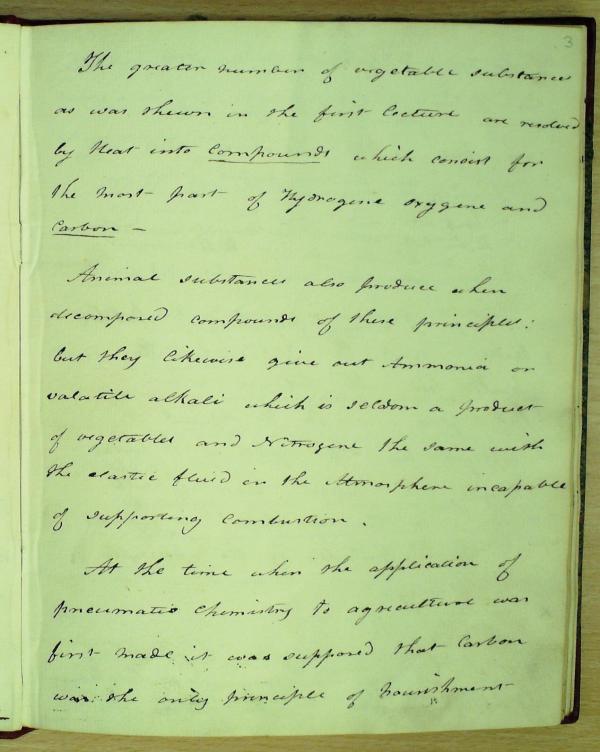 3
The greater number of vegetable substances
as was shewn in the first Lecture are resolved
by Heat into Compounds which consist for
the most part of Hydrogene oxygene and
Carbon –
Animal substances also produce when
decomposed compounds of these principles:
but they likewise give out Ammonia or
volatile alkali which is seldom a product
of vegetables and Nitrogene the same with
the elastic fluid in the Atmosphere incapable
of supporting Combustion.
At the time when the application of
pneumatic Chemistry to agriculture was
first made it was supposed that Carbon
was the only principle of nourishment